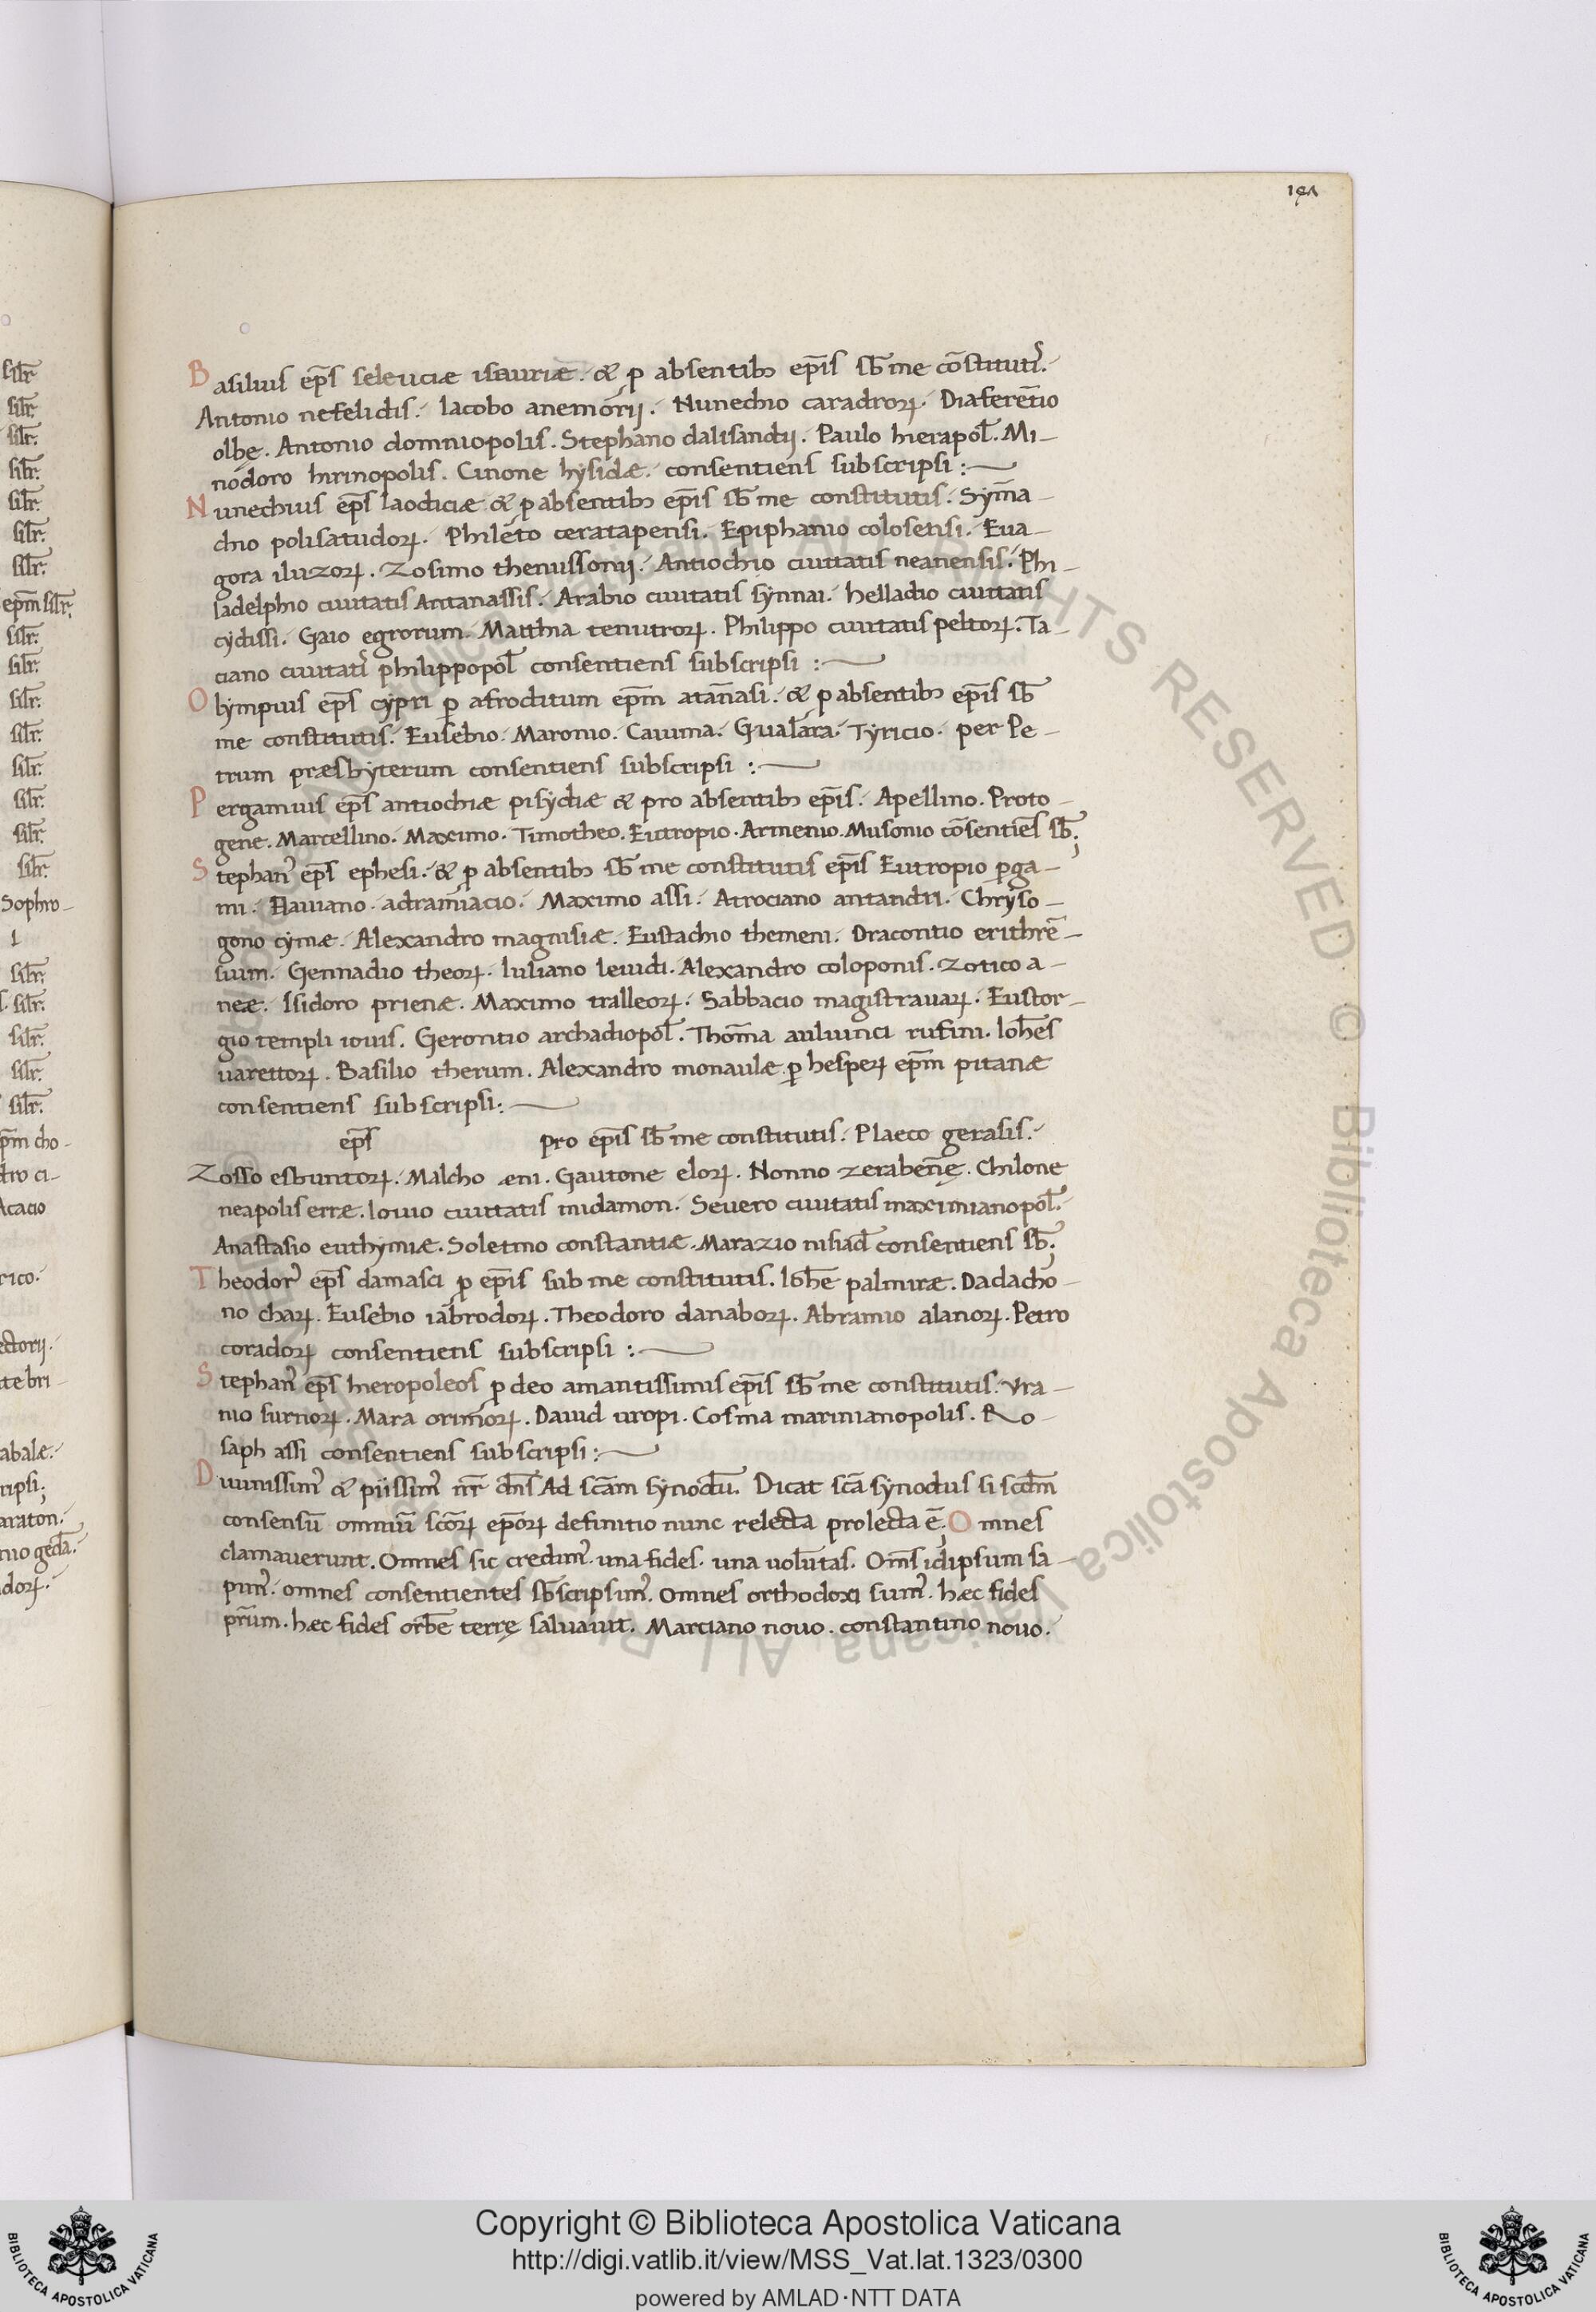 Basilius ep̄s seleuciæ isauriæ. & ꝓ absentib; ep̄is sb̄ me cōstituti᾽.
Antonio nefelidis. Iacobo anemórij. Nunechio caradroꝝ. Diaferēt̄io
olbe. Antonio domniopolis. Stephano dalisandij. Paulo hierapol̄. Mi-
nodoro hirinopolis. Cinone hysidæ. consentiens subscripsi :—
Nunechius ep̄s laodiciæ & ꝓ absentib; ep̄is sb̄ me constitutis. Sym̄a-
chio polisatudoꝝ. Philéto ceratapensi. Epiphanio colosensi. Eua-
gora iluzoꝝ. Zosimo thenussonij. Antiochio ciuitatis neanensis. Phi-
ladelphio ciuitatis Antanassis. Arabio ciuitatis synnai. helladio ciuitatis
cydissi. Gaio egrorum. Matthia tenutroꝝ. Philippo ciuitatis peltoꝝ. Ta-
ciano ciuitati᾽ philippopol̄ consentiens subscripsi :—
Olympius ep̄s cypri ꝑ afroditum ep̄m atan̄asi. & ꝓ absentib; ep̄is sb̄
me constitutis. Eusebio. Maronio. Caiuma. Gualára. Tyricio. per Pe-
trum præsbyterum consentiens subscripsi :—
Pergamius ep̄s antiochiæ pisydiæ & pro absentib; ep̄is. Apellino. Proto-
gene. Marcellino. Maximo. Timotheo. Eutropio. Armenio. Musonio cōsentien̄s sb̄;
Stephan᾽ ep̄s ephesi. & ꝓ absentib; sb̄ me constitutis ep̄is Eutropio ꝑga-
mi. Flauiano. adramiacio. Maximo assi. Atrociano antandri. Chryso-
gono cymæ. Alexandro magnisiæ. Eustachio themeni. Dracontio erithrē-
sium. Gennadio theoꝝ. Iuliano leuidi. Alexandro coloponis. Zotico a-
neæ. Isidoro prienæ. Maximo tralleoꝝ. Sabbacio magistrauaꝝ. Eustor-
gio templi iouis. Gerontio archadiopol̄. Thom̄a auliunci rufini. Ioh̄es
uarettoꝝ. Basilio therum. Alexandro monaulæ ꝑ hespeꝝ ep̄m pitanæ
consentiens subscripsi :—
ep̄s pro ep̄is sb̄ me constitutis. Plaeco gerasis.
Zosso esbuntoꝝ. Malcho æni. Gautone eloꝝ. Nonno zeraben̄ę. Chilone
neapolis erræ. Iouio ciuitatis nidamon. Seuero ciuitatis maximianopol̄.
Anastasio euthymiæ. Soletmo constantiæ. Marazio nisiad̄ consentiens sb̄;
Theodor᾽ ep̄s damasci ꝓ ep̄is sub me constitutis. Ioh̄e palmiræ. Dadacho-
no chaꝝ. Eusebio iabrodoꝝ. Theodoro danaboꝝ. Abramio alanoꝝ. Petro
coradoꝝ consentiens subscripsi :—
Stephan᾽ ep̄s hieropoleos ꝓ deo amantissimis ep̄is sb̄ me constitutis. Vra-
nio surnoꝝ. Mara orimoꝝ. Dauid uropi. Cosma marinianopolis. Ro-
saph assi consentiens subscripsi :—
Diuinissim᾽ & piissim᾽ nr̄ dn̄s Ad scām synodū. Dicat scā synodus si scdm̄
consensū omniū scōꝝ epōꝝ definitio nunc relecta prolecta ē. Omnes
clamauerunt. Omnes sic credim᾽. una fides. una uolūtas. Om̄s idipsum sa-
pim᾽. omnes consentientes sb̄scripsim᾽. Omnes orthodoxi sum᾽. hæc fides
pr̄um. hæc fides orbē terrę saluauit. Marciano nouo. constantino nouo.
Copyright © Biblioteca Apostolica Vaticana
http://digi.vatlib.it/view/MSS_Vat.lat.1323/0300
powered by AMLAD·NTT DATA